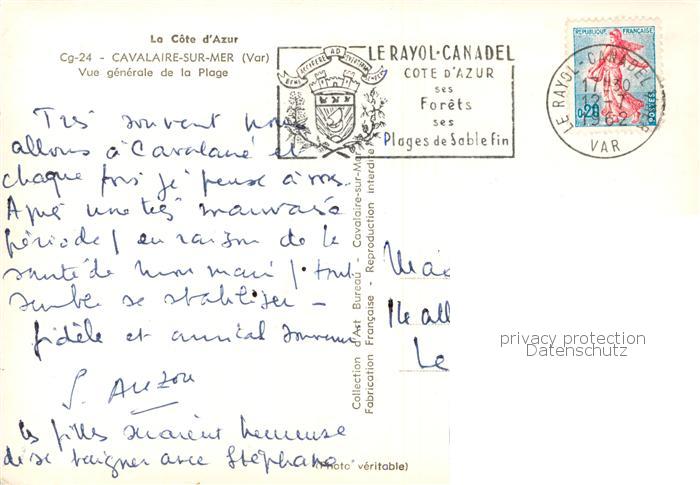 La Côte d'Azur
Cg-24 - CAVALAIRE-SUR-MER (Var)
Vue générale de la Plage
BENE ACCIPERE AD
LE RAYOL-CANADEL
COTE D'AZUR
ses
Forêts
ses
Plages de Sable fin
REPUBLIQUE FRANÇAISE
0,20
POSTES
LE RAYOL-CANADEL
17H30
12-7
1962
VAR
Très souvent nous
allons à Cavalaire et
chaque fois je pense à vous.
Après une très mauvaise
période (en raison de la
santé de mon mari) tout
semble se stabiliser -
fidèle et amical souvenir
S. Auzou
les filles seraient heureuses
de se baigner avec Stéphane
Collection d'Art Bureau - Cavalaire-sur-Mer
Fabrication Française - Reproduction interdite
(Photo véritable)
privacy protection
Datenschutz